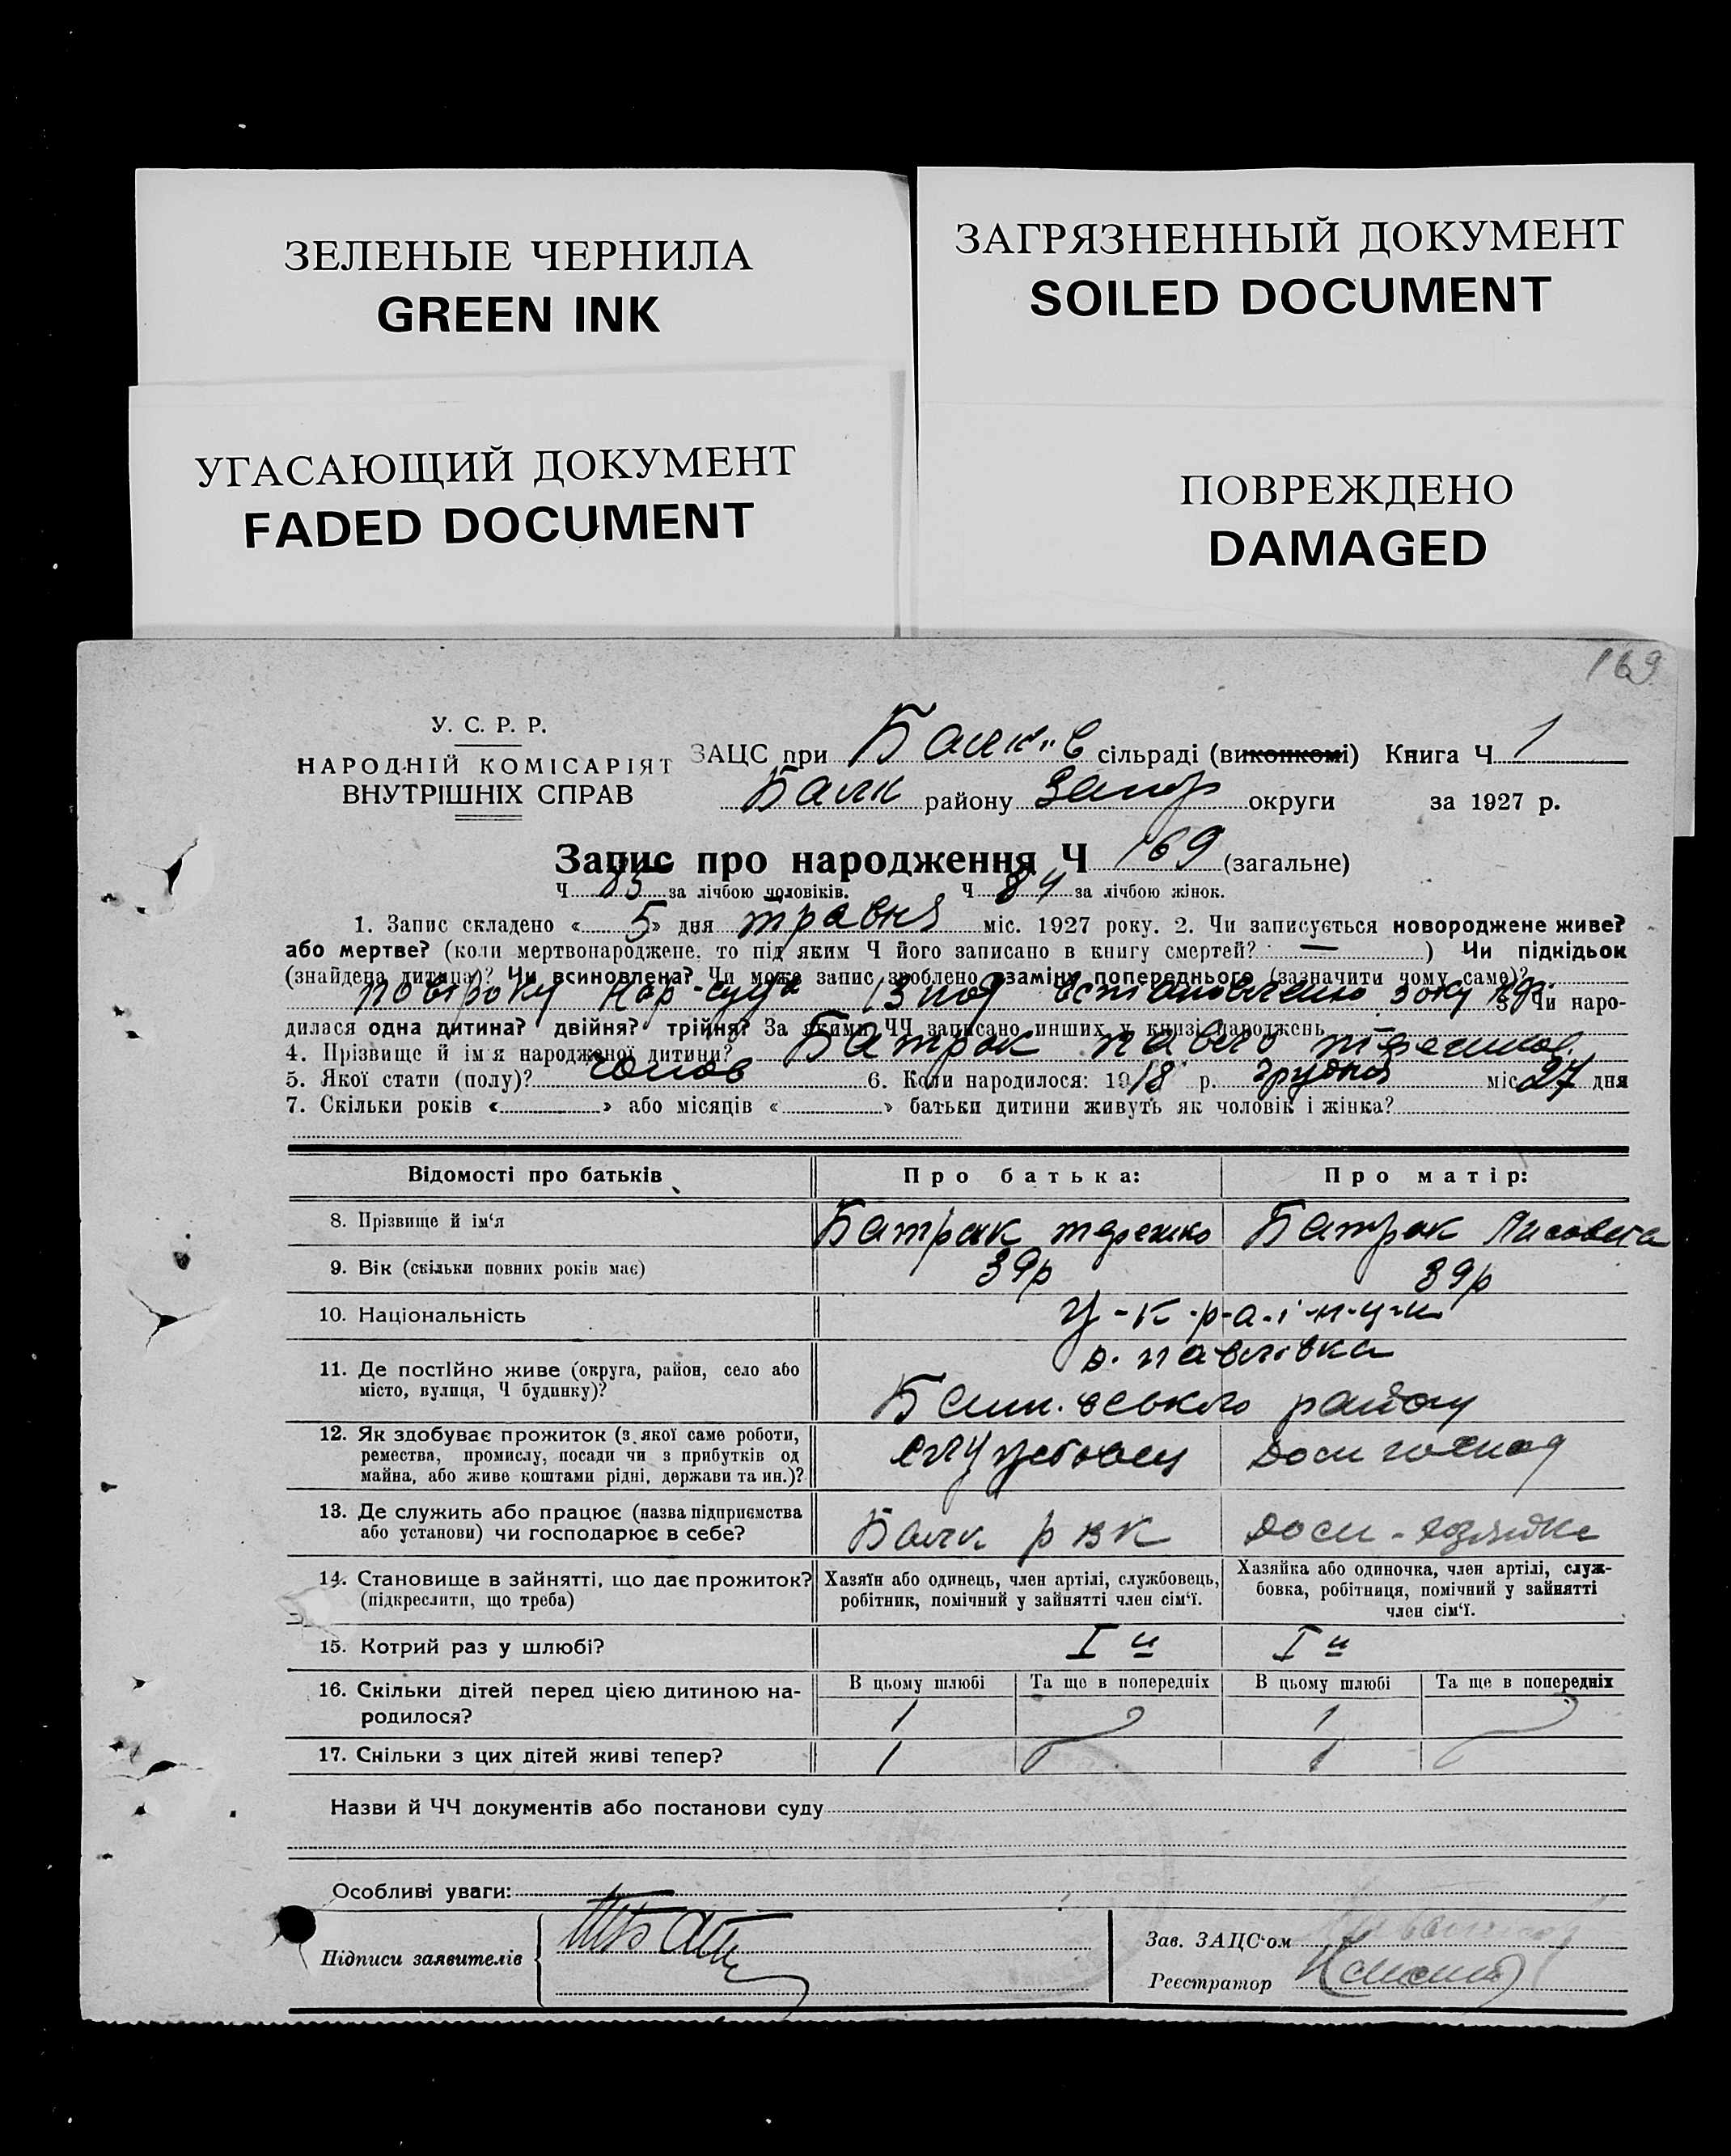 ЗЕЛЕНЫЕ ЧЕРНИЛА
GREEN INK
ЗАГРЯЗНЕННЫЙ ДОКУМЕНТ
SOILED DOCUMENT
УГАСАЮЩИЙ ДОКУМЕНТ
FADED DOCUMENT
ПОВРЕЖДЕНО
DAMAGED
169
У. С. Р. Р.
НАРОДНІЙ КОМІСАРІЯТ
ВНУТРІШНІХ СПРАВ
ЗАЦС при сільраді (виконкомі) Книга Ч 1
Балк району Запор округи за 1927 р.
Запис про народження Ч 169 (загальне)
Ч 85 за лічбою чоловіків. Ч 84 за лічбою жінок.
1. Запис складено « 5 » дня травня міс. 1927 року. 2. Чи записується новороджене живе?
або мертве? (коли мертвонароджене, то під яким Ч його записано в книгу смертей? — ) Чи підкідьок
(знайдена дитина)? Чи всиновлена? Чи може запис зроблено взаміну попереднього (зазначити чому саме)?
3. Чи наро-
дилася одна дитина? двійня? трійня? За якими ЧЧ записано инших у книзі народжень
4. Прізвище й ім'я народженої дитини? Батрак Павло
5. Якої стати (полу)? чолов 6. Коли народилося: 1918 р. грудня міс. 27 дня
7. Скільки років « » або місяців « » батьки дитини живуть як чоловік і жінка?
Відомості про батьків Про батька: Про матір:
8. Прізвище й ім'я Батрак Терешко Батрак Лисовета
9. Вік (скільки повних років має) 39р 39р
10. Національність У-к-р-а-ї-н-ц-и
11. Де постійно живе (округа, район, село або
місто, вулиця, Ч будинку)?
с. Павлівка
району
12. Як здобуває прожиток (з якої саме роботи,
ремества, промислу, посади чи з прибутків од
майна, або живе коштами рідні, держави та ин.)?
службовец
13. Де служить або працює (назва підприємства
або установи) чи господарює в себе?
Балк РВК
14. Становище в зайнятті, що дає прожиток?
(підкреслити, що треба)
Хазяїн або одинець, член артілі, службовець,
робітник, помічний у зайнятті член сім'ї.
Хазяйка або одиночка, член артілі, служ-
бовка, робітниця, помічний у зайнятті
член сім'ї.
15. Котрий раз у шлюбі? І й І й
16. Скільки дітей перед цією дитиною на-
родилося?
В цьому шлюбі Та ще в попередніх В цьому шлюбі Та ще в попередніх
1 1
17. Скільки з цих дітей живі тепер? 1 1
Назви й ЧЧ документів або постанови суду
Особливі уваги:
Підписи заявителів
Зав. ЗАЦС'ом
Реєстратор